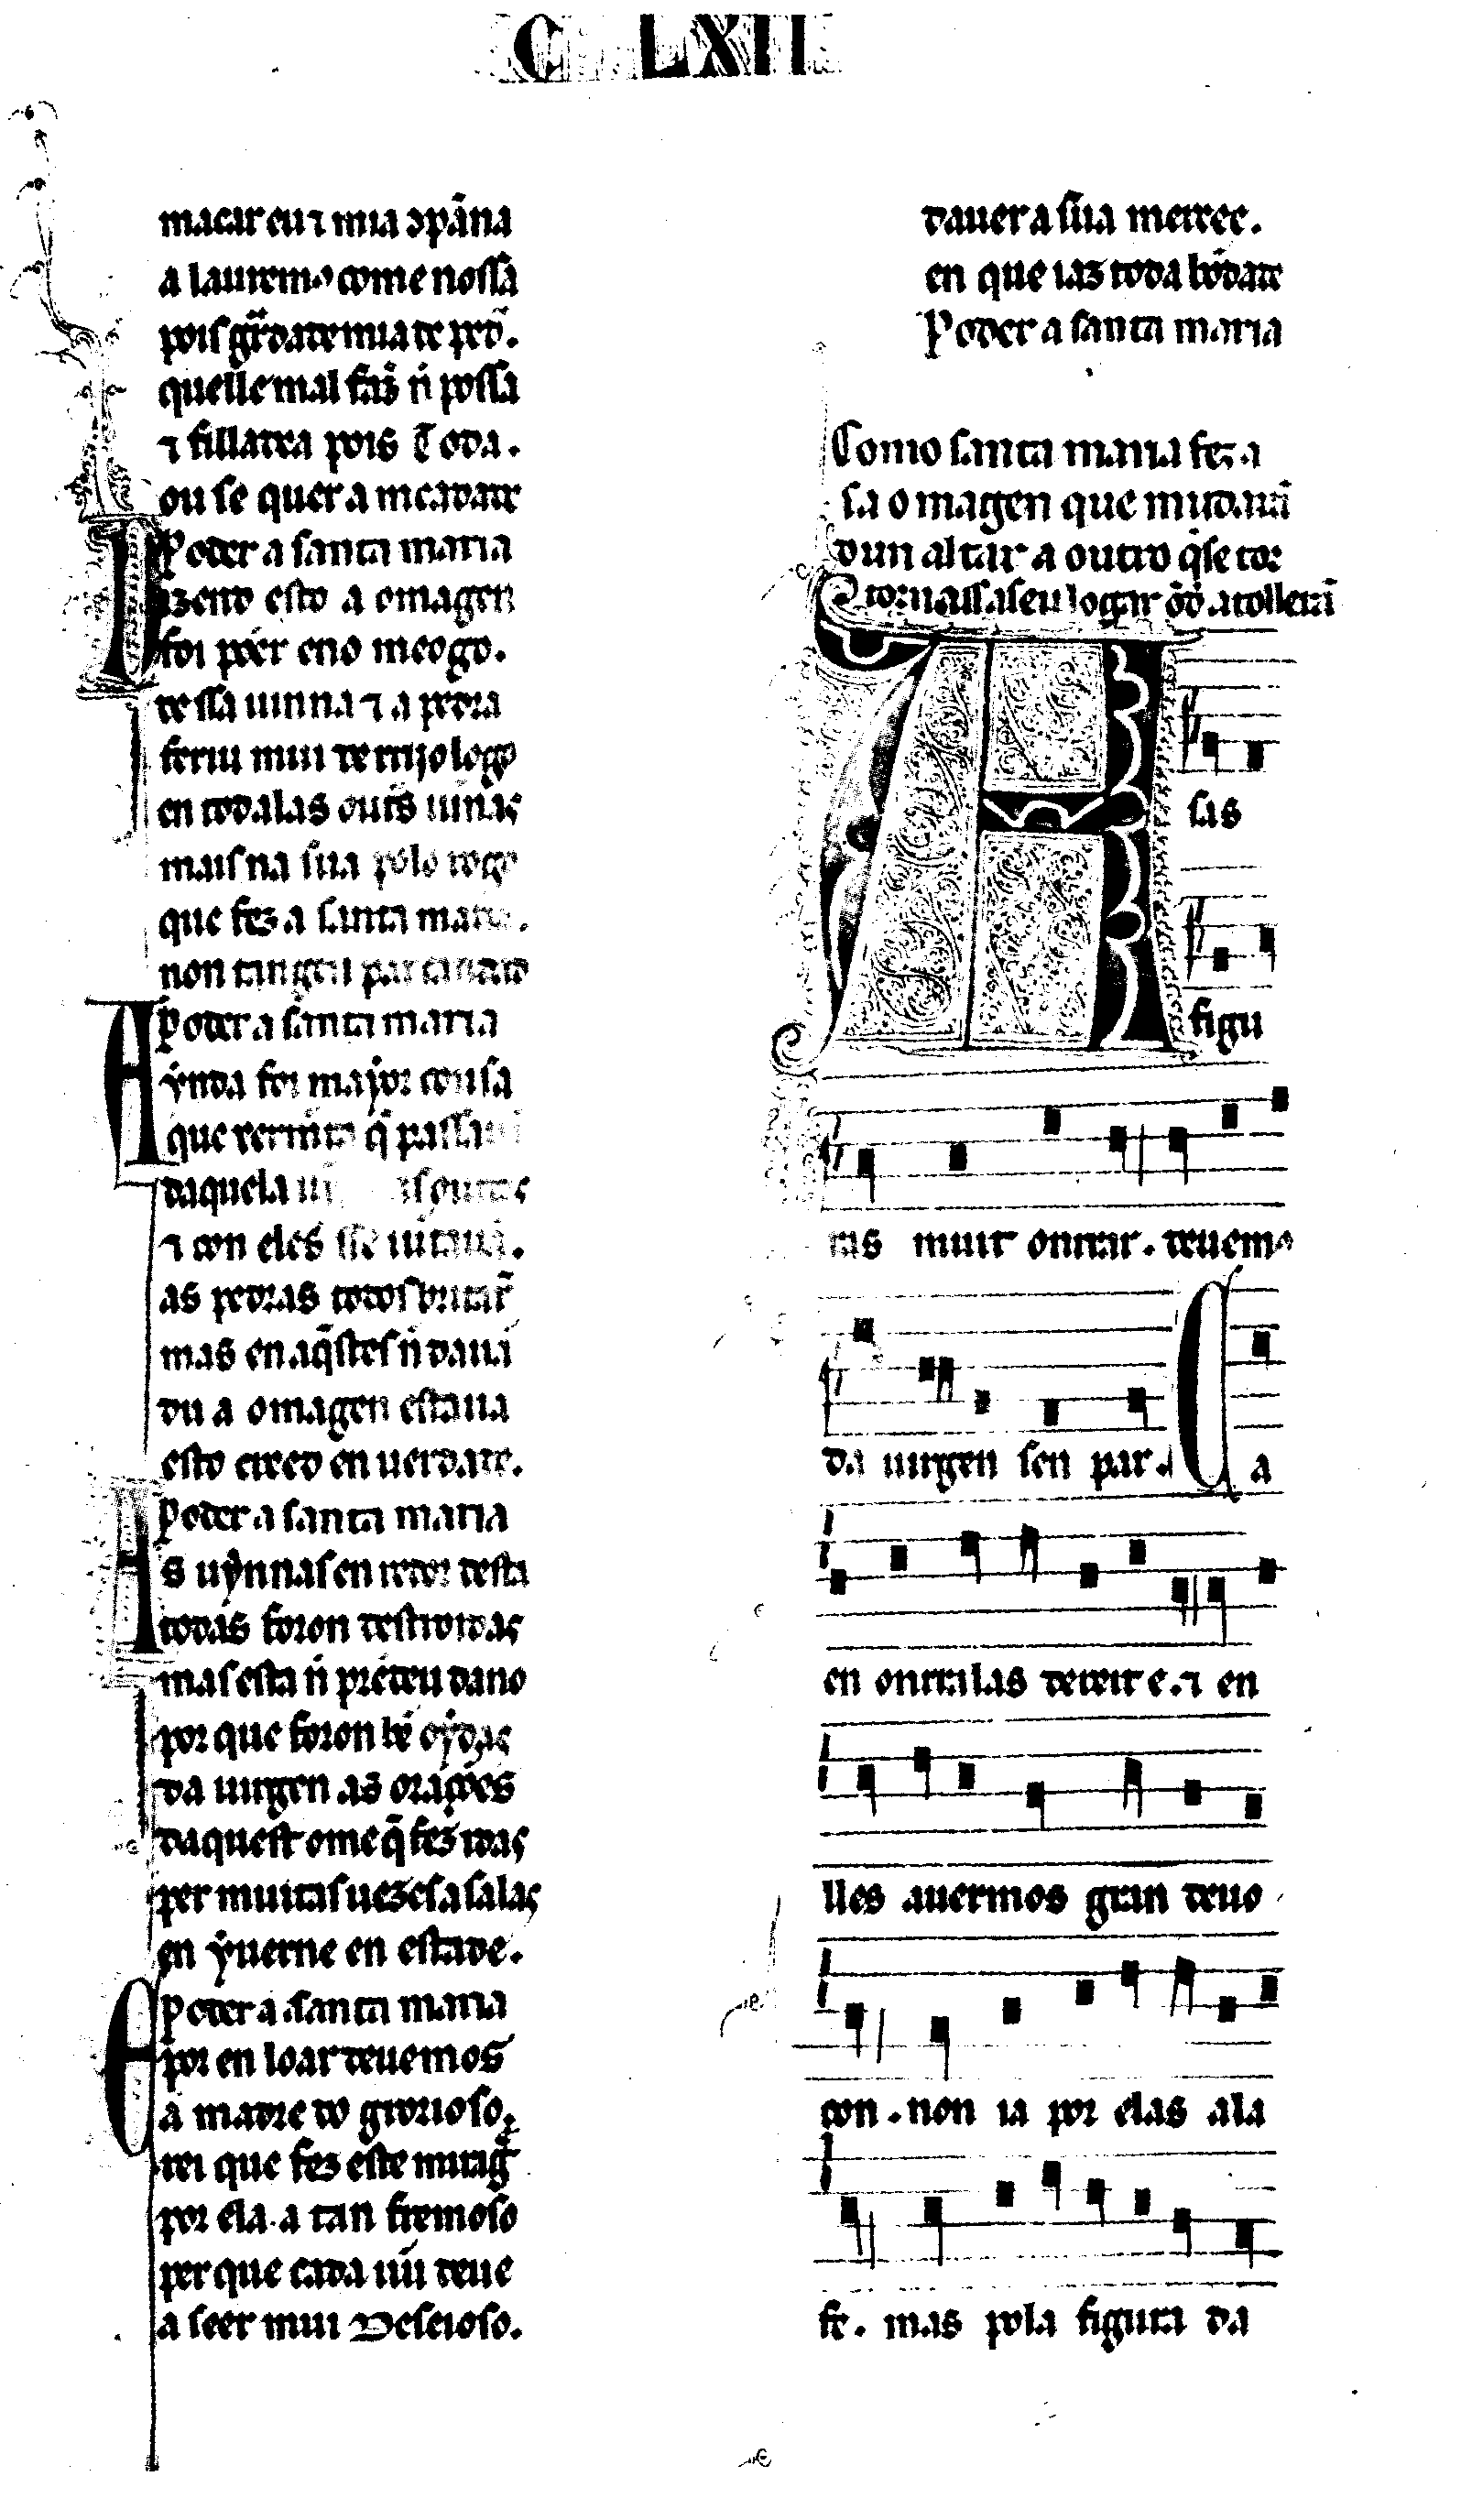 C LXII
macar eu ⁊ mia ↄpãna
a lauremꝰ come nossa
pois gr̃dade mia te ped̃.
quelle mal faz̃ nͥ possa
⁊ fillatea pois Toda.
ou se quer a meadade
Poder a santa maria
Dizendo esto a omagen
foi põer eno meogo.
dessa uinna ⁊ a pedra
feriu mui de rrijo logo
en todalas out̃s uiñas
mais na sua polo rogo
que fez a santa maria.
non tangeu par caridade
Poder a santa maria
Aynda foi mayor cousa
que verrm̃to q̃ passaua
daquela as outras
⁊ con eles sse iũtaua.
as pedras todos britar̃
mas en aq̃stes nͥ daua
du a omagen estaua
esto creed en uerdade.
Poder a santa maria
As uynnas en redor desta
todas foron destroidas
mas esta nͥ prẽdeu dano
por que foron bẽ oydas
da uirgen as orações
daquest ome q̃ fez idas
per muitas uezes a salas
en yuerne en estade.
Poder a santa maria
E por en loar deuemos
a madre do grorioso
rei que fez este mirag̃
por ela a tan fremoso
per que cada uũ deue
a seer mui deseioso.
dauer a sua mercee.
en que iaz toda bõdade
Poder a santa maria
Como santa maria fez a
sa omagen que mudauã
dun altar a outro q̃ se tor
tornass a seu logar õd a tollerã
As
sas
figu
ras muit onrrar. deuemꝰ
da uirgen sen par. Ca
en onrralas dereit e. ⁊ en
lles auermos gran deuo
çon. non ia por elas a la
fe. mas pola figura da